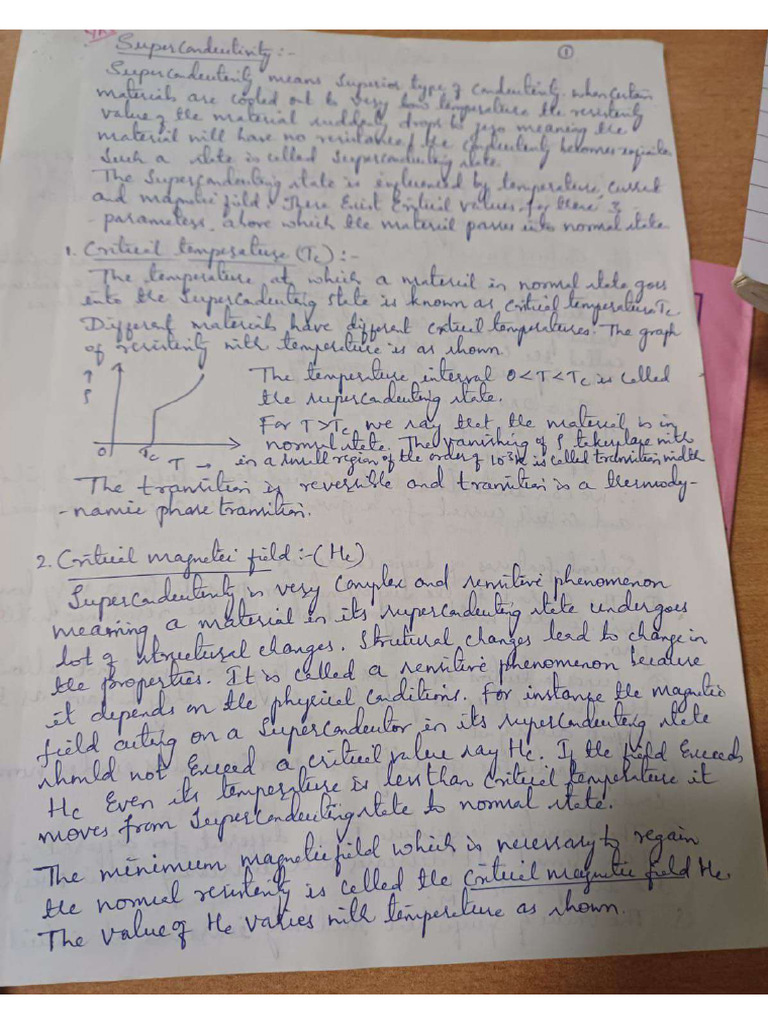 ①
Superconductivity :-
Superconductivity means superior type of conductivity. When certain
materials are cooled out to very low temperature the resistivity
value of the material suddenly drops to zero meaning the
material will have no resistance & the conductivity becomes infinite.
Such a state is called superconducting state.
The superconducting state is influenced by temperature current
and magnetic field. There exist critical values for these 3
- parameters, above which the material passes into normal state
1. Critical temperature (Tc) :-
The temperature at which a material in normal state goes
into the superconducting state is known as critical temperature Tc
Different materials have different critical temperatures. The graph
of resistivity with temperature is as shown.
↑
ρ
0 Tc T →
The temperature interval 0<T<Tc is called
the superconducting state.
For T>Tc we say that the material is in
normal state. The vanishing of ρ takes place with
in a small region of the order of 10⁻³K is called transition width
The transition is reversible and transition is a thermody-
-namic phase transition.
2. Critical magnetic field :- (Hc)
Superconductivity is very complex and sensitive phenomenon
meaning a material in its superconducting state undergoes
lot of structural changes. Strutural changes lead to change in
the properties. It is called a sensitive phenomenon because
it depends on the physical conditions. For instance the magnetic
field acting on a superconductor in its superconducting state
should not exceed a critical value say Hc. If the field exceeds
Hc Even its temperature is less than critical temperature it
moves from superconducting state to normal state.
The minimum magnetic field which is necessary to regain
the normal resistivity is called the critical magnetic field Hc.
The value of Hc varies with temperature as shown.